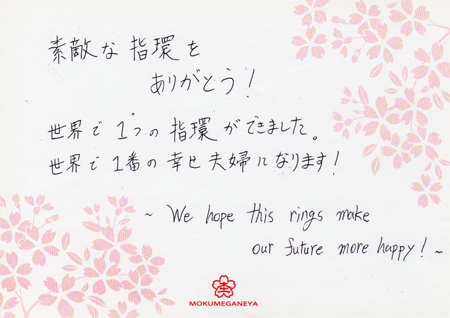 素敵な指環を
ありがとう!
世界で1つの指環ができました。
世界で1番の幸せ夫婦になります!
~ We hope this rings make
our future more happy! ~
MOKUMEGANEYA